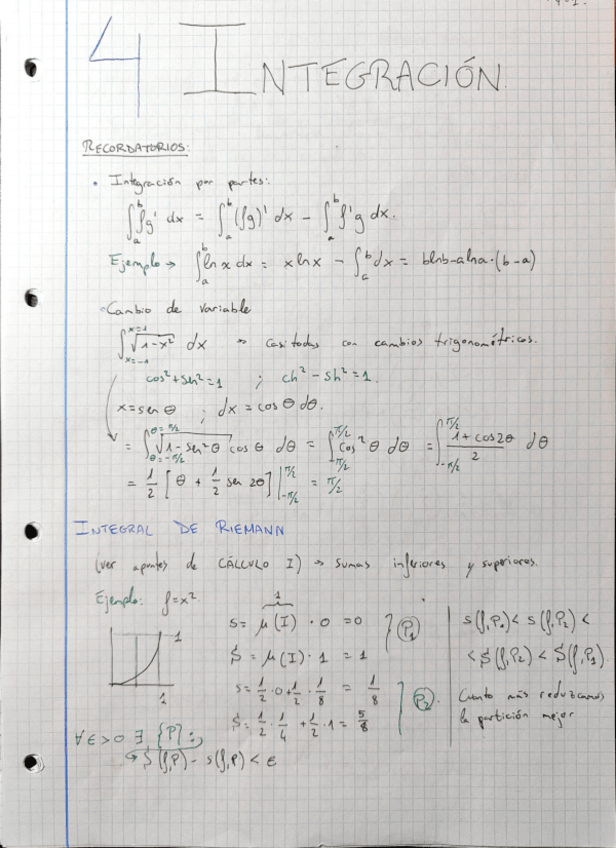 4 INTEGRACIÓN.
RECORDATORIOS:
• Integración por partes:
∫ₐᵇ fg' dx = ∫ₐᵇ (fg)' dx - ∫ₐᵇ f'g dx.
Ejemplo → ∫ₐᵇ ln x dx = x ln x - ∫ₐᵇ dx = b ln b - a ln a · (b - a)
• Cambio de variable
∫_{x=-1}^{x=1} √(1-x²) dx → Casi todas con cambios trigonométricos.
cos² + sen² = 1 ; ch² - sh² = 1.
x = sen θ ; dx = cos θ dθ.
= ∫_{θ=-π/2}^{θ=π/2} √(1-sen²θ) cos θ dθ = ∫_{-π/2}^{π/2} cos² θ dθ = ∫_{-π/2}^{π/2} (1+cos2θ)/2 dθ
= 1/2 [θ + 1/2 sen 2θ]|_{-π/2}^{π/2} = π/2
INTEGRAL DE RIEMANN
(ver apuntes de CÁLCULO I) → sumas inferiores y superiores.
Ejemplo: f=x²
1
1
1
s = μ(I) · 0 = 0
S = μ(I) · 1 = 1
P₁
s = 1/2 · 0 + 1/2 · 1/8 = 1/8
S = 1/2 · 1/4 + 1/2 · 1 = 5/8
P₂.
s(f,P₁) < s(f,P₂) <
< S(f,P₂) < S(f,P₁).
Cuanto más reduzcamos
la partición mejor
∀ε>0 ∃ {P}:
→ S(f,P) - s(f,P) < ε